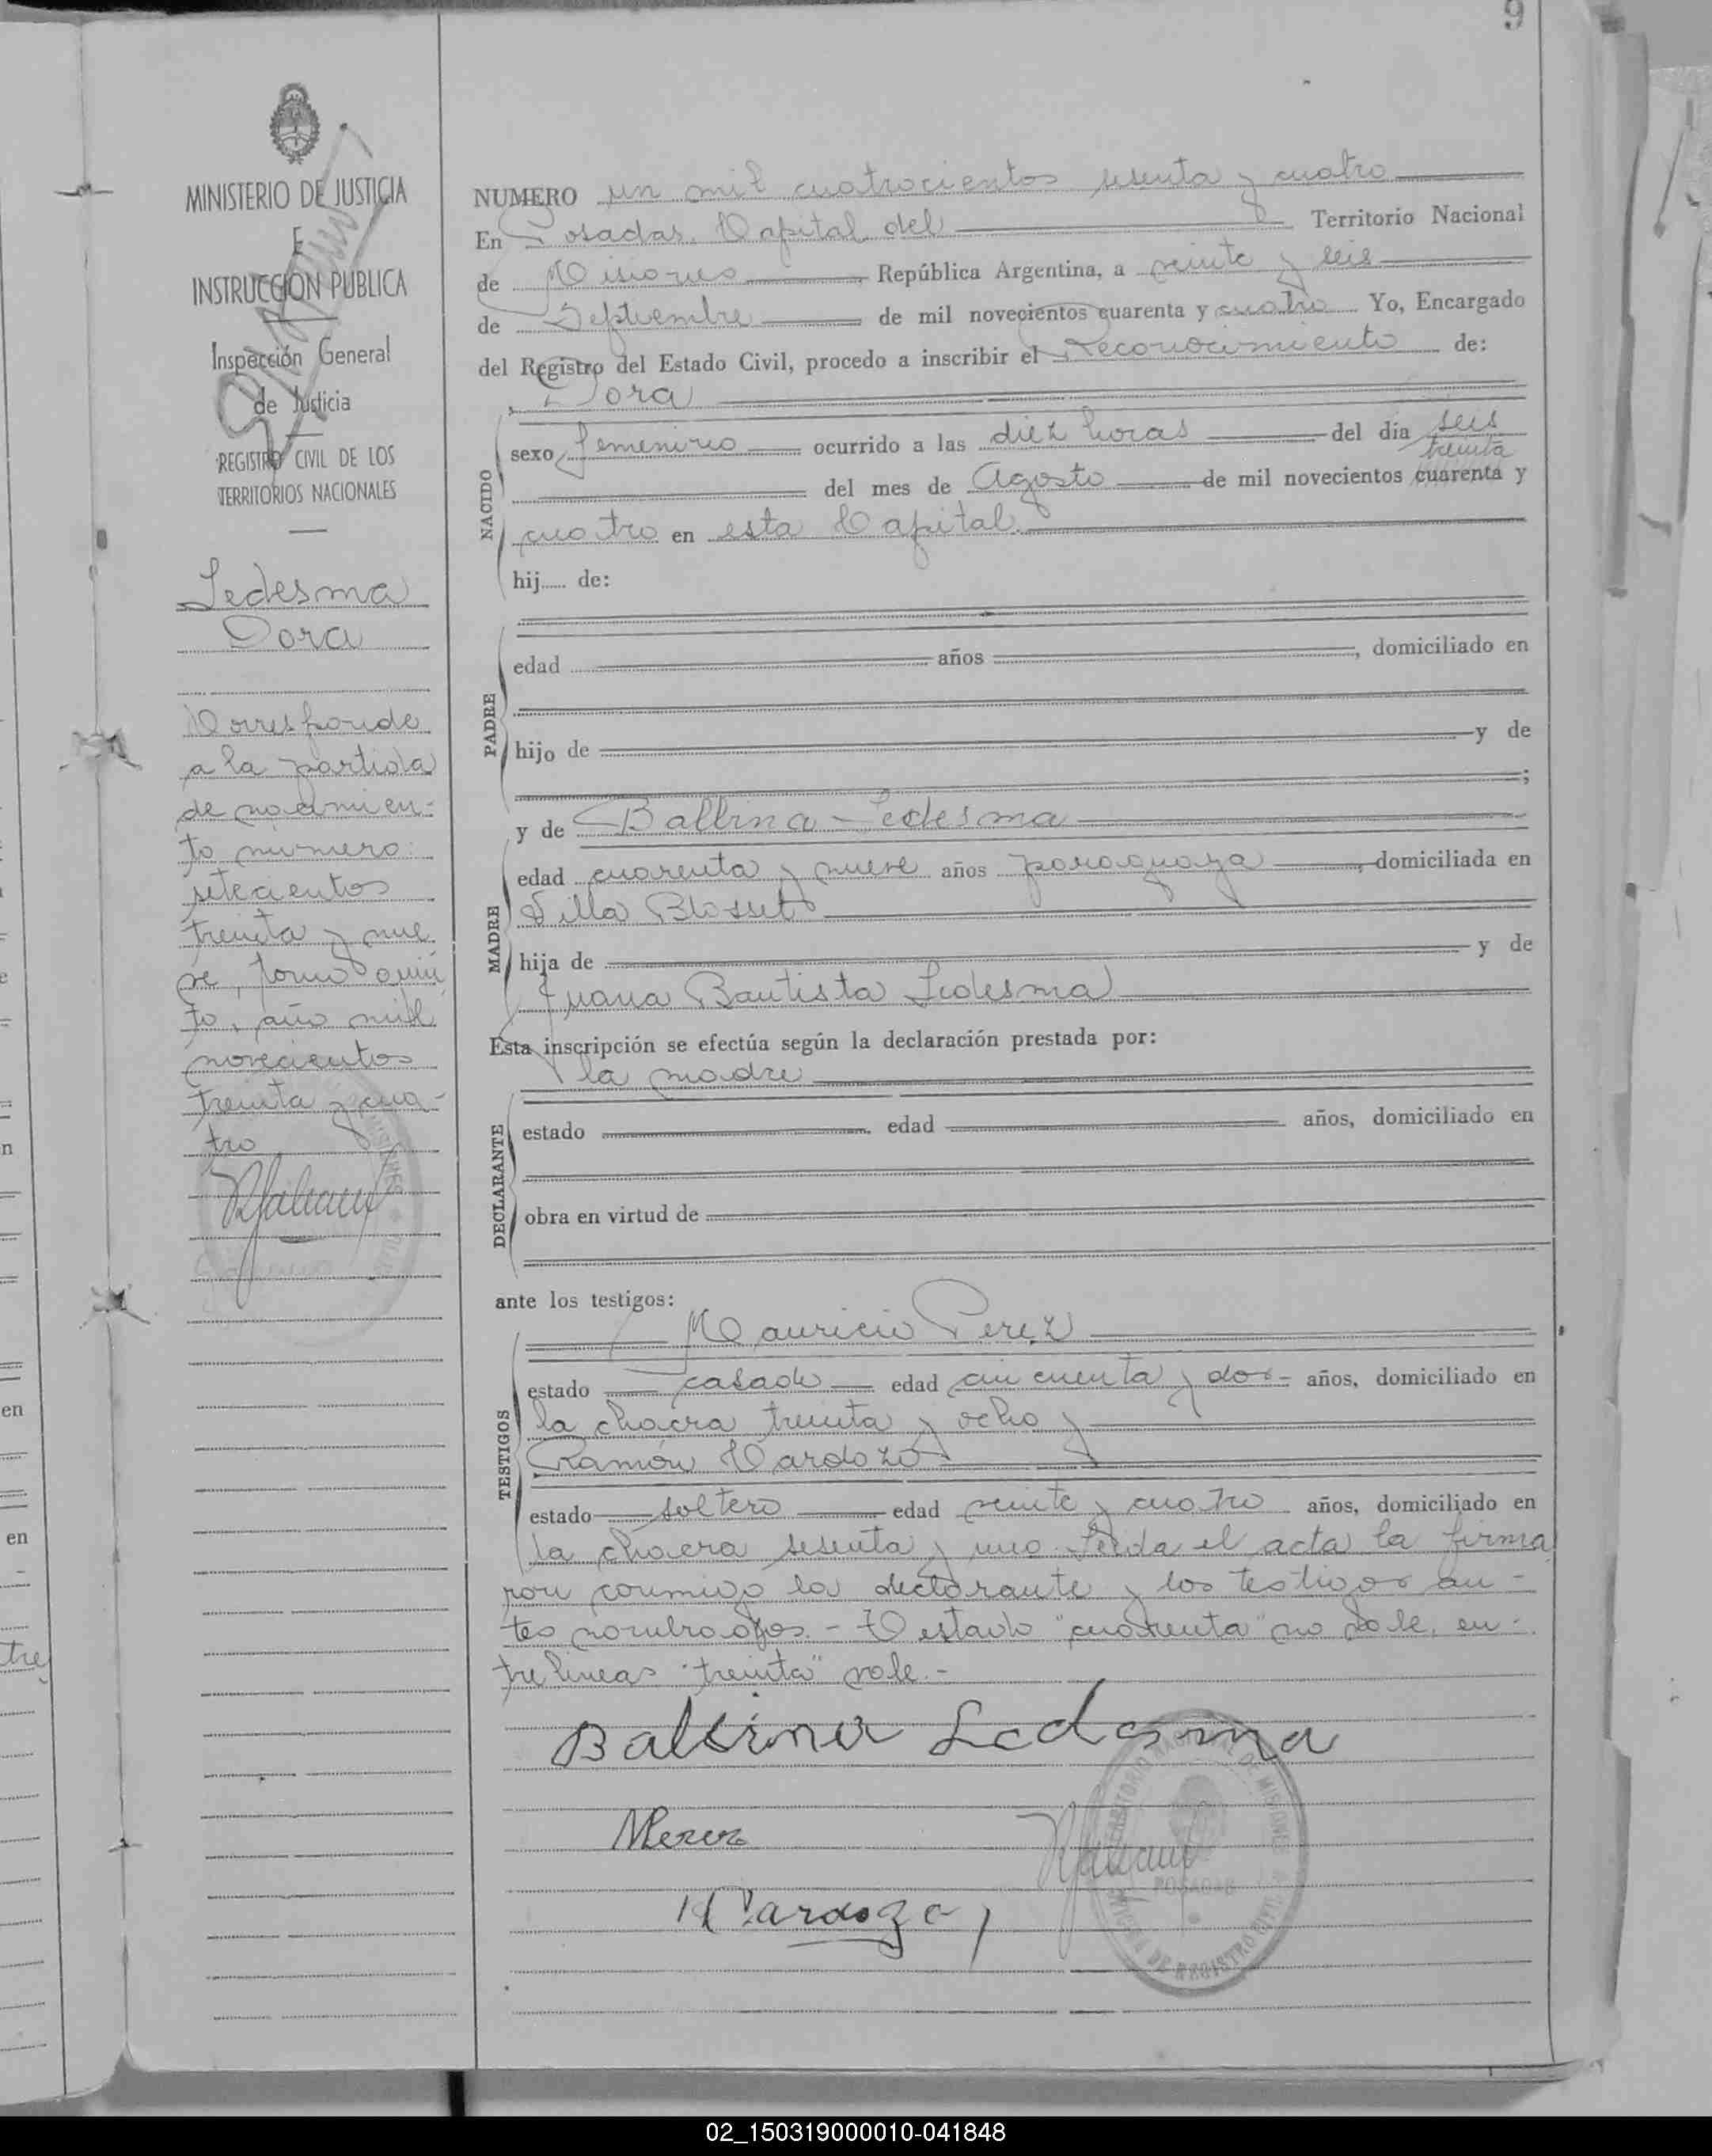 9
MINISTERIO DE JUSTICIA
E
INSTRUCCION PUBLICA
Inspección General
de Justicia
REGISTRO CIVIL DE LOS
TERRITORIOS NACIONALES
Ledesma
Dora
Corresponde
a la partida
de nacimien-
to número:
setecientos
treinta y nue
ve, tomo quin
to, año mil
novecientos
treinta y cua-
tro
NUMERO un mil cuatrocientos sesenta y cuatro
En Posadas, Capital del Territorio Nacional
de Misiones República Argentina, a veinte y seis
de Septiembre de mil novecientos cuarenta y cuatro Yo, Encargado
del Registro del Estado Civil, procedo a inscribir el Reconocimiento de:
Dora
NACIDO
sexo femenino ocurrido a las diez horas del día seis
treinta
del mes de Agosto de mil novecientos cuarenta y
cuatro en esta Capital.
hij..... de:
PADRE
edad años , domiciliado en
hijo de y de
;
MADRE
y de Balbina Ledesma
edad cuarenta y nueve años paraguaya , domiciliada en
Villa Blosset
hija de y de
Juana Bautista Ledesma
Esta inscripción se efectúa según la declaración prestada por:
la madre
DECLARANTE
estado edad años, domiciliado en
obra en virtud de
ante los testigos:
TESTIGOS
Mauricio Perez
estado casado edad cincuenta y dos - años, domiciliado en
la chacra treinta y ocho y
Ramón Cardozo
estado soltero edad veinte y cuatro años, domiciliado en
la chacra sesenta y uno. Leida el acta la firma
ron conmigo la declarante y los testigos an-
tes nombrados. - Testado "cuarenta" no vale, en-
tre lineas "treinta" vale. -
Balbina Ledesma
MPerez
RCardozo
POSADAS
02_150319000010-041848